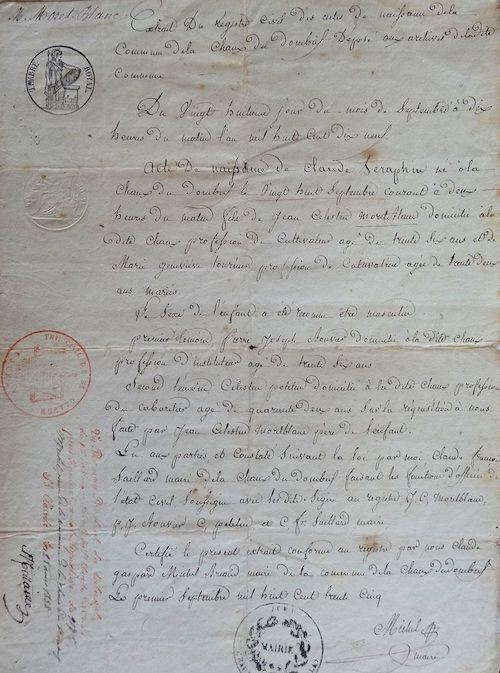 M. Moret-Blanc
Extrait Du registre civil des actes de naissance de la
Commune de la Chaux du Dombief Deposé aux archives de la dite
Commune
TIMBRE ROYAL
Du Vingt huitieme jour du mois de Septembre à dix
heures du matin l'an mil huit cent dix neuf
Acte de naissance de Claude Seraphin né à la
Chaux du Dombief le Vingt huit Septembre courant à deux
heures du matin fils de Jean Celestin Moretblanc domicilié à la
dite Chaux profession de Cultivateur agé de trente six ans et de
Marie genevieve tournier profession de Cultivatrice agée de trente deux
ans mariés.
Le Sexe de l'enfant a été reconnu être masculin
premier temoin Pierre Joseph Bouvier domicilié à la dite Chaux
profession d'instituteur agé de trente six ans
Second temoin Celestin petetin domicilié à la dite Chaux profession
de cabartier agé de quarante deux ans Sur la requisition à nous
faite par Jean Celestin Moretblanc père de l'enfant.
Lu aux parties et Constaté Suivant la loi par moi Claude françois
Jaillard maire de la Chaux du Dombief faisant les fonctions d'officier de
l'état Civil, Soussigné avec les dits. Signé au registre J. C. Moretblanc,
p. J. Bouvier C. petetin et C. fr. Jaillard maire
Certifié le present extrait conforme au registre par nous Claude
gaspard Michel maire de la commune de la Chaux du dombief
Le premier Septembre mil huit Cent trente Cinq
Michel
maire
TRIBUNAL DE ST CLAUDE
JURA
MAIRIE